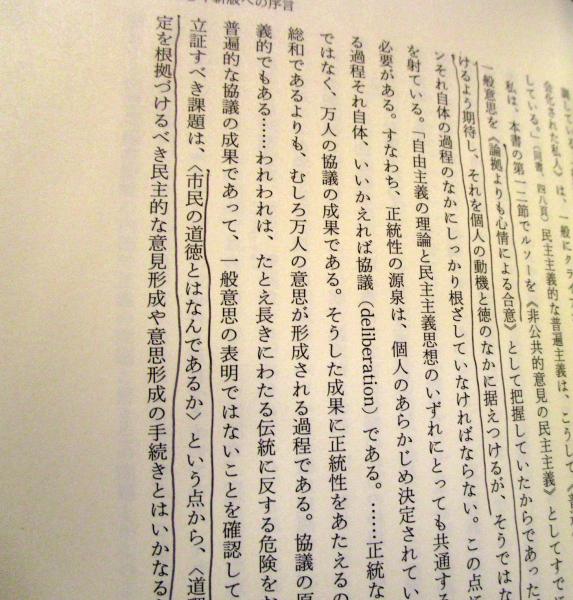 新版への序言
会化された私人〉は、一般にクライ
している。」(同書、四八頁)民主主義的な普遍主義は、こうして
私は、本書の第一二節でルソーを《非公共的意見の民主主義》としてすでに
一般意思を《論拠よりも心情による合意》として把握していたからであった
けるよう期待し、それを個人の動機と徳のなかに据えつけるが、そうではな
ンそれ自体の過程のなかにしっかり根ざしていなければならない。この点に
を射ている。「自由主義の理論と民主主義思想のいずれにとっても共通する
必要がある。すなわち、正統性の源泉は、個人のあらかじめ決定されてい
る過程それ自体、いいかえれば協議(deliberation)である。……正統な
ではなく、万人の協議の成果である。そうした成果に正統性をあたえるの
総和であるよりも、むしろ万人の意思が形成される過程である。協議の原
義的でもある……われわれは、たとえ長きにわたる伝統に反する危険を
普遍的な協議の成果であって、一般意思の表明ではないことを確認して
立証すべき課題は、〈市民の道徳とはなんであるか〉という点から、〈道理
定を根拠づけるべき民主的な意見形成や意思形成の手続きとはいかなる